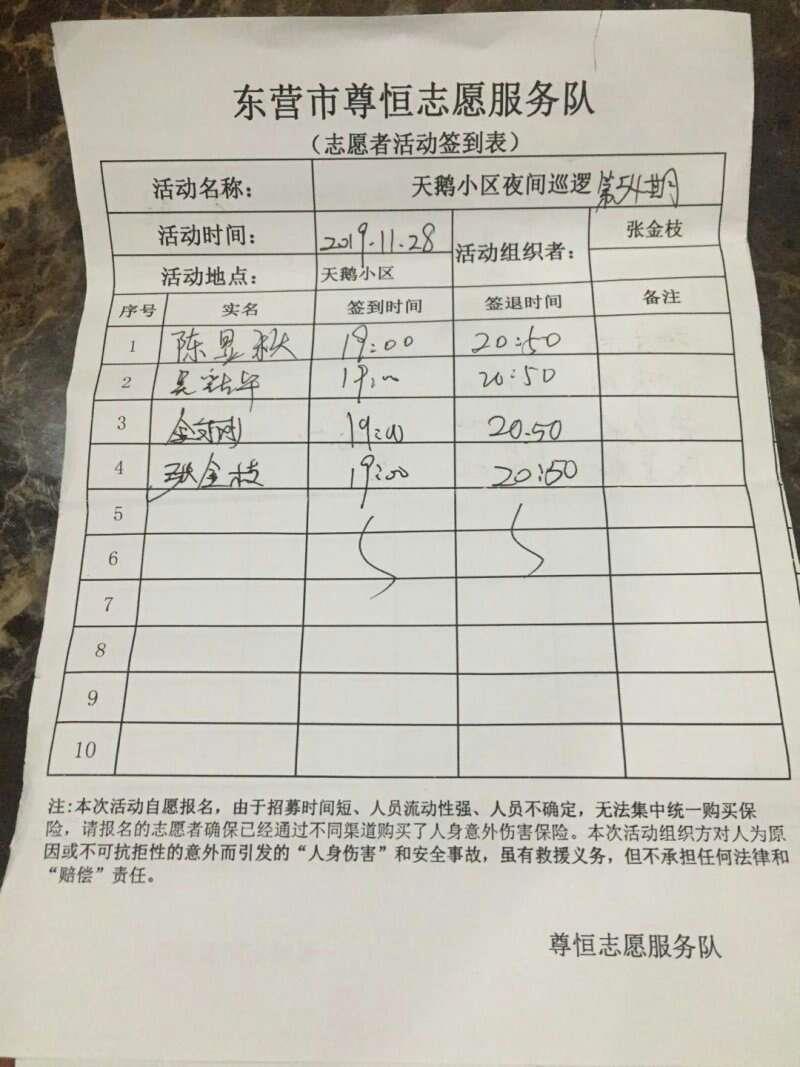 东营市尊恒志愿服务队
（志愿者活动签到表）
活动名称： 天鹅小区夜间巡逻 第54期
活动时间： 2019.11.28 活动组织者： 张金枝
活动地点： 天鹅小区
序号 实名 签到时间 签退时间 备注
1 陈显秋 19:00 20:50
2 19:00 20:50
3 19:00 20.50
4 张金枝 19:00 20:50
5
6
7
8
9
10
注:本次活动自愿报名，由于招募时间短、人员流动性强、人员不确定，无法集中统一购买保
险，请报名的志愿者确保已经通过不同渠道购买了人身意外伤害保险。本次活动组织方对人为原
因或不可抗拒性的意外而引发的“人身伤害”和安全事故，虽有救援义务，但不承担任何法律和
“赔偿”责任。
尊恒志愿服务队